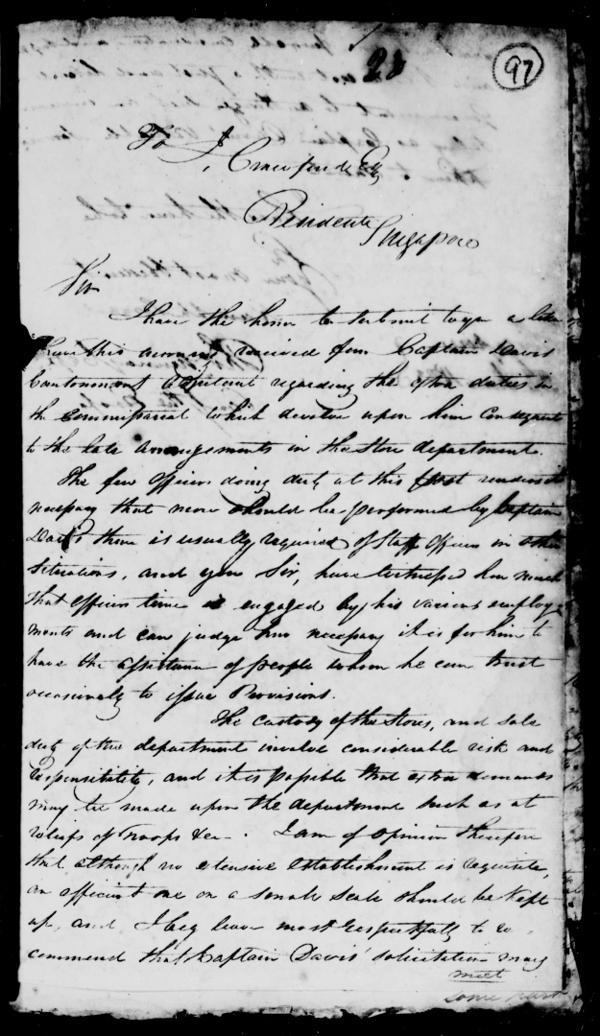 28
97
To J. Crawfurd Esq
Resident
Singapore
Sir
I have the honor to submit to you a letter
I have this morning received from Captain Davis
Cantonment Adjutant regarding the extra duties in
the Commissariat which devolve upon him consequent
to the late arrangements in the Store department.
The few officers doing duty at this Post renders it
necessary that more should be performed by Captain
Davis than is usually required of Staff Officers in other
Situations, and you Sir, have witnessed how much
that officers time is engaged by his various employ
ments and can judge how necessary it is for him to
have the assistance of people whom he can trust
occasionaly to issue Provisions.
The Custody of the Stores, and sole
duty of this department involve considerable risk and
responsibility, and it is possible that extra demands
may be made upon the department such as at
reliefs of Troops &ca. I am of opinion therefore
that although no extensive establishment is requisite,
an efficient one on a small Scale should be kept
up, and I beg leave most respectfully to re
commend that Captain Davis' solicitation may
meet
some part